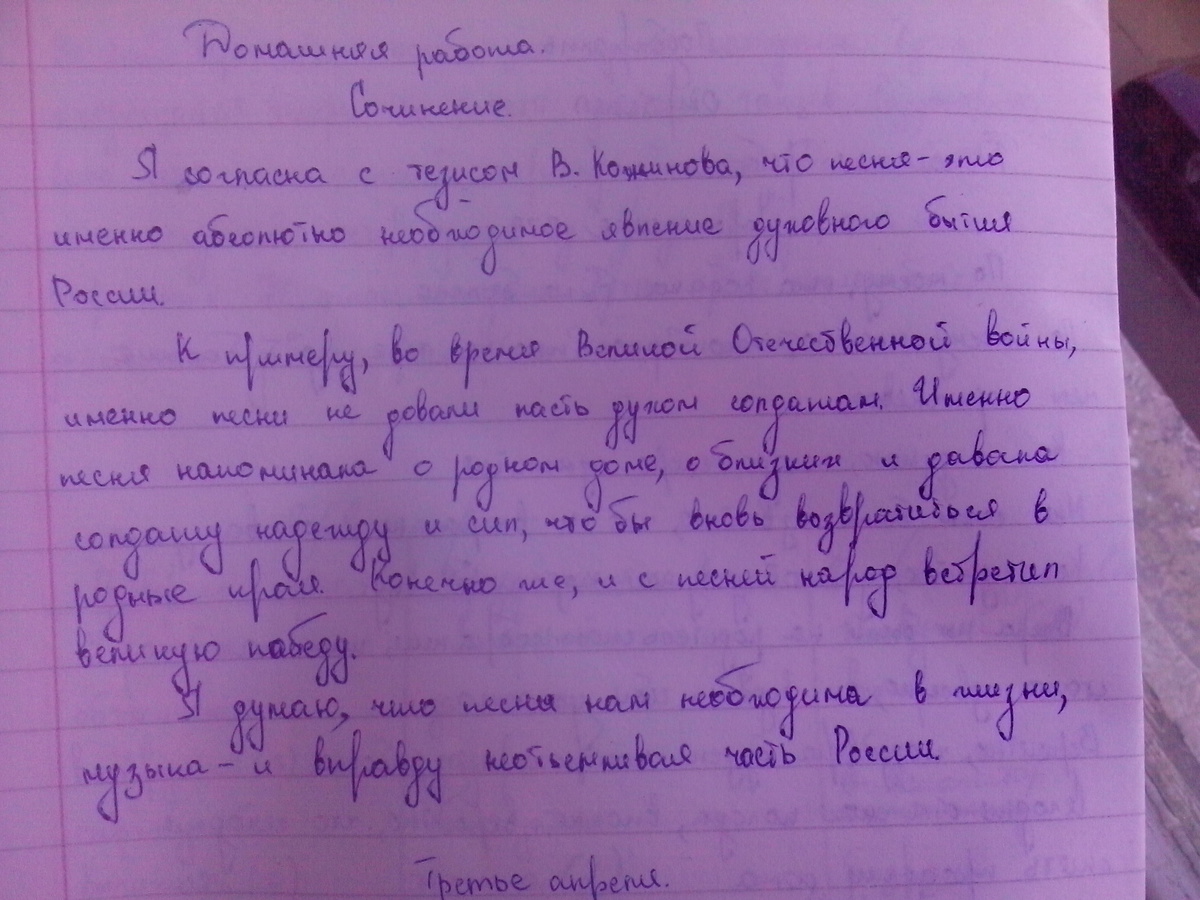 Домашняя работа.
Сочинение.
Я согласна с тезисом В. Кожинова, что песня - это
именно абсолютно необходимое явление духовного бытия
России.
К примеру, во время Великой Отечественной войны,
именно песни не довали пасть духом солдатам. Именно
песня напоминала о родном доме, о близких и давала
солдату надежду и сил, что бы вновь возвратиться в
родные края. Конечно же, и с песней народ встретил
великую победу.
Я думаю, что песня нам необходима в жизни,
музыка - и вправду неотъемливая часть России.
Третье апреля.